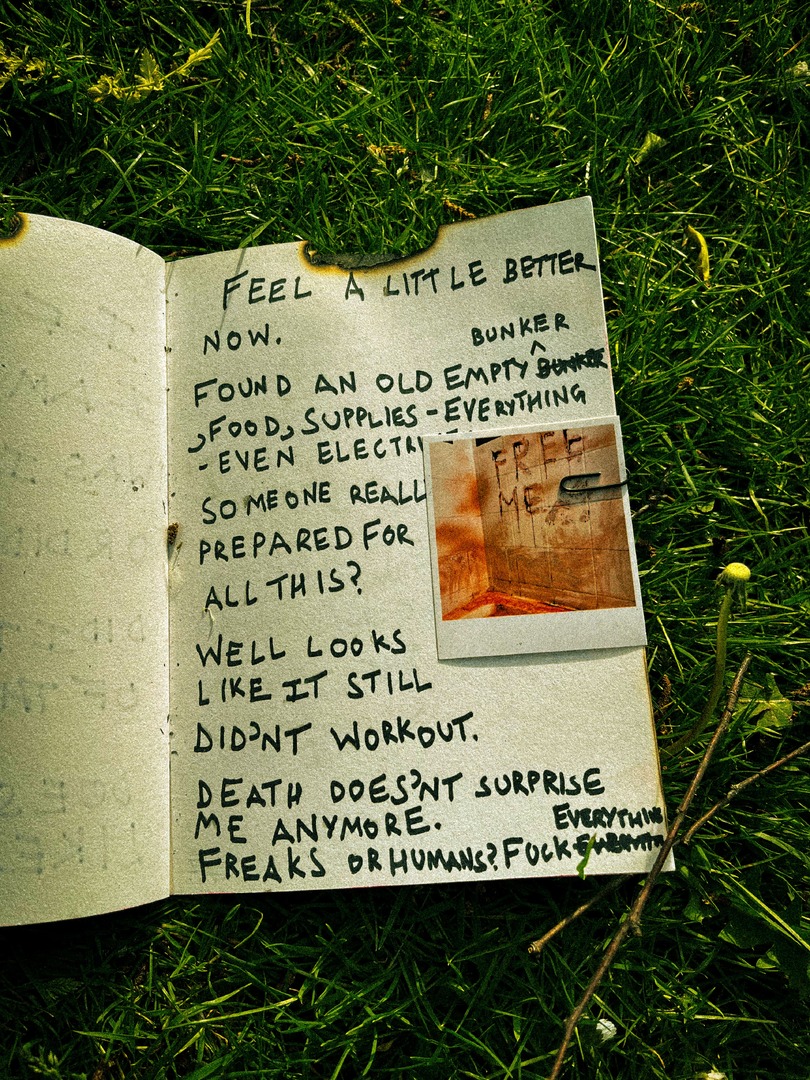 FEEL A LITTLE BETTER
NOW.
BUNKER
FOUND AN OLD EMPTY BUNKER
, FOOD, SUPPLIES - EVERYTHING
- EVEN ELECTRI
SOMEONE REALL
PREPARED FOR
ALL THIS?
WELL LOOKS
LIKE IT STILL
DID'NT WORKOUT.
DEATH DOES'NT SURPRISE
ME ANYMORE.
EVERYTHIN
FREAKS OR HUMANS? FUCK
FREE
ME